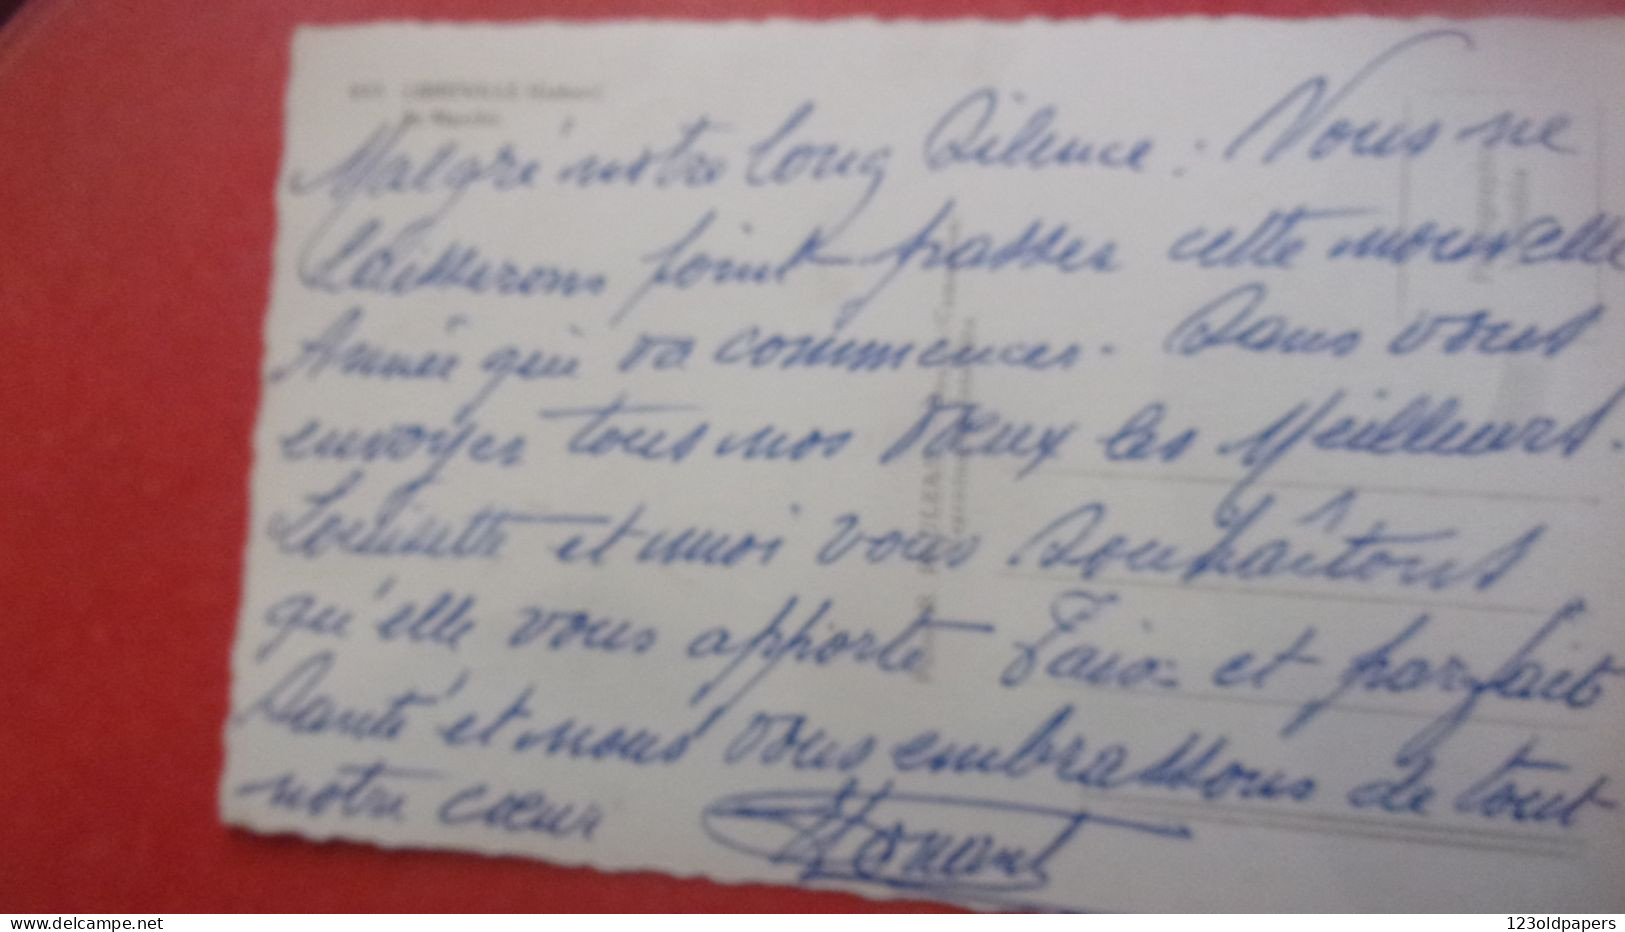 LIBREVILLE (Gabon)
Le Marché
Malgré notre long Silence : Vous ne
laisserons point passer cette nouvelle
Année qui va commencer. Sans vous
envoyer tous nos Vœux les Meilleurs.
Louisette et moi vous Souhaitons
qu'elle vous apporte Joie et parfait
Santé et nous vous embrassons de tout
notre cœur
www.delcampe.net
123oldpapers